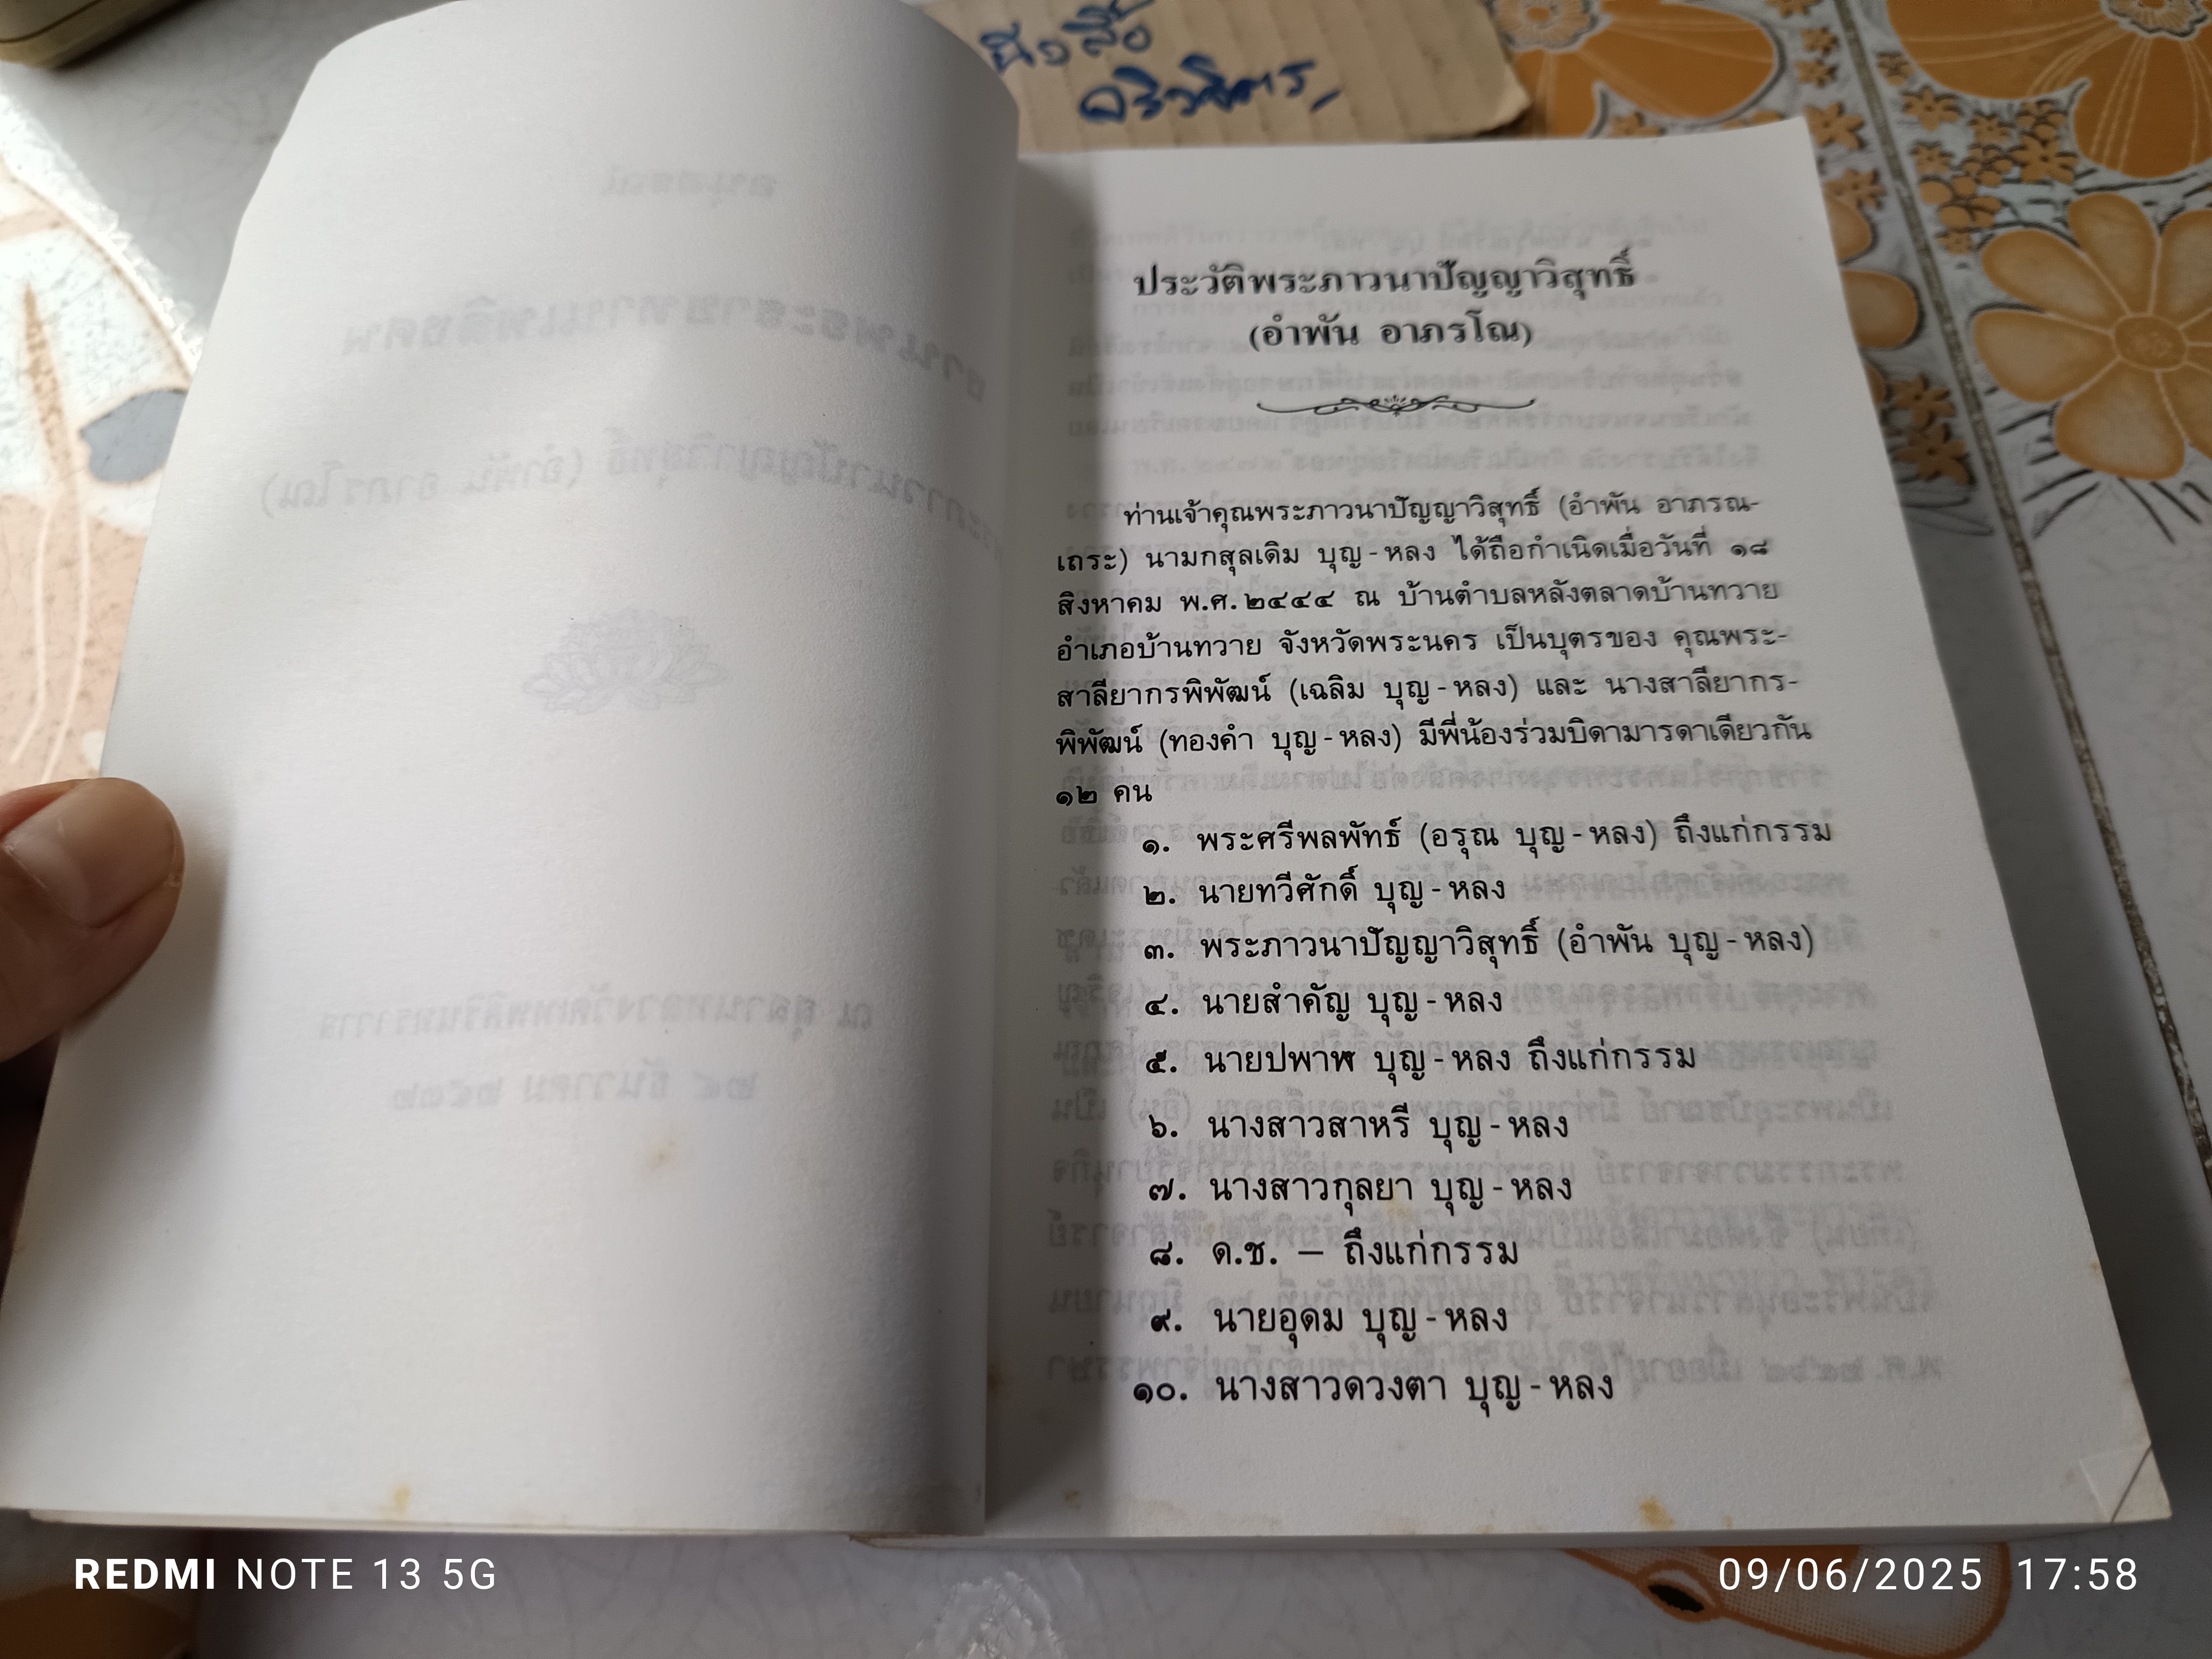 ประวัติพระภาวนาปัญญาวิสุทธิ์
(อำพัน อาภรโณ)
ท่านเจ้าคุณพระภาวนาปัญญาวิสุทธิ์ (อำพัน อาภรณ-
เถระ) นามกสุลเดิม บุญ-หลง ได้ถือกำเนิดเมื่อวันที่ ๑๘
สิงหาคม พ.ศ.๒๔๔๔ ณ บ้านตำบลหลังตลาดบ้านทวาย
อำเภอบ้านทวาย จังหวัดพระนคร เป็นบุตรของ คุณพระ-
สาลียากรพิพัฒน์ (เฉลิม บุญ-หลง) และ นางสาลียากร-
พิพัฒน์ (ทองคำ บุญ-หลง) มีพี่น้องร่วมบิดามารดาเดียวกัน
๑๒ คน
๑. พระศรีพลพัทธ์ (อรุณ บุญ-หลง) ถึงแก่กรรม
๒. นายทวีศักดิ์ บุญ-หลง
๓. พระภาวนาปัญญาวิสุทธิ์ (อำพัน บุญ-หลง)
๔. นายสำคัญ บุญ-หลง
๕. นายปพาฬ บุญ-หลง ถึงแก่กรรม
๖. นางสาวสาหรี บุญ-หลง
๗. นางสาวกุลยา บุญ-หลง
๘. ด.ช. — ถึงแก่กรรม
๙. นายอุดม บุญ-หลง
๑๐. นางสาวดวงตา บุญ-หลง
REDMI NOTE 13 5G
09/06/2025 17:58